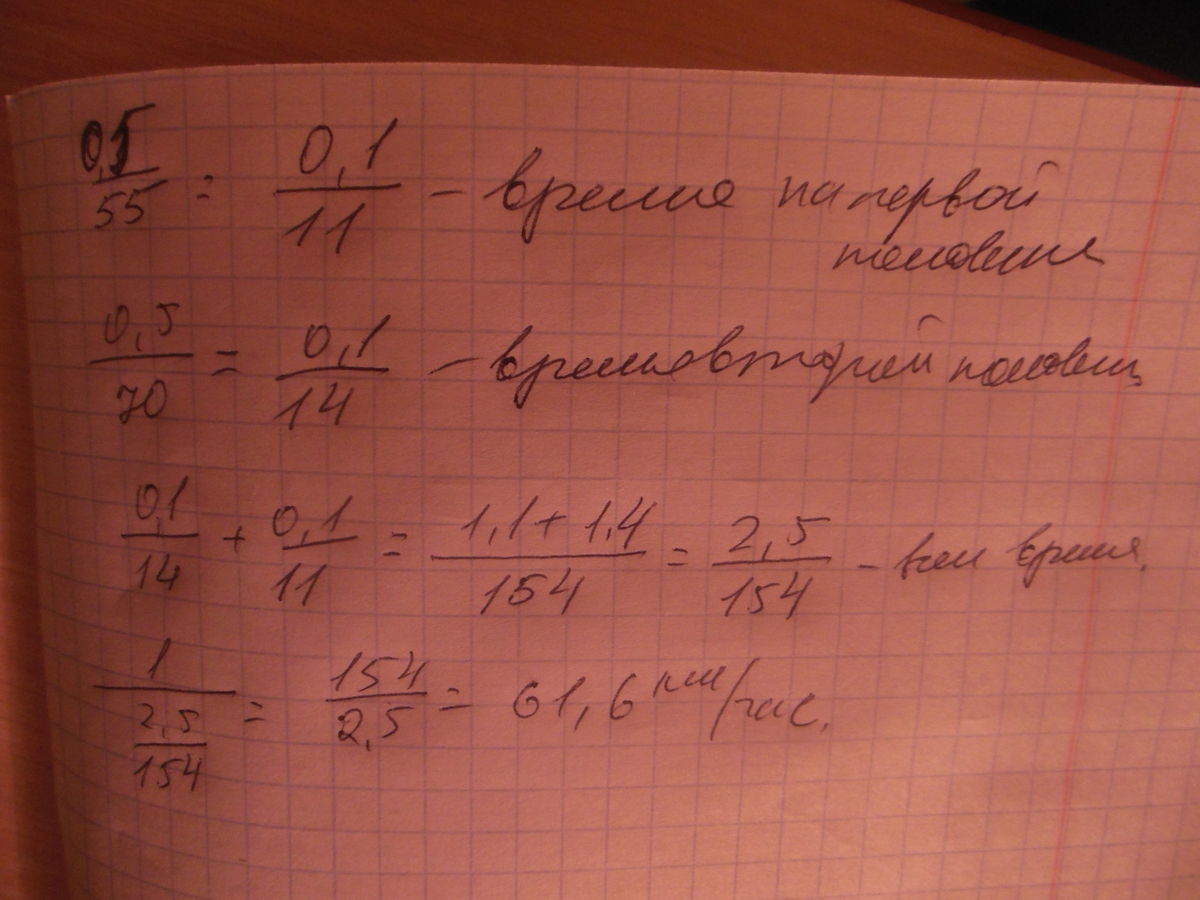 0,5/55 = 0,1/11 – время на первой
половине
0,5/70 = 0,1/14 – время второй половин
0,1/14 + 0,1/11 = 1,1+1,4/154 = 2,5/154 – время.
1/(2,5/154) = 154/2,5 = 61,6 км/час.